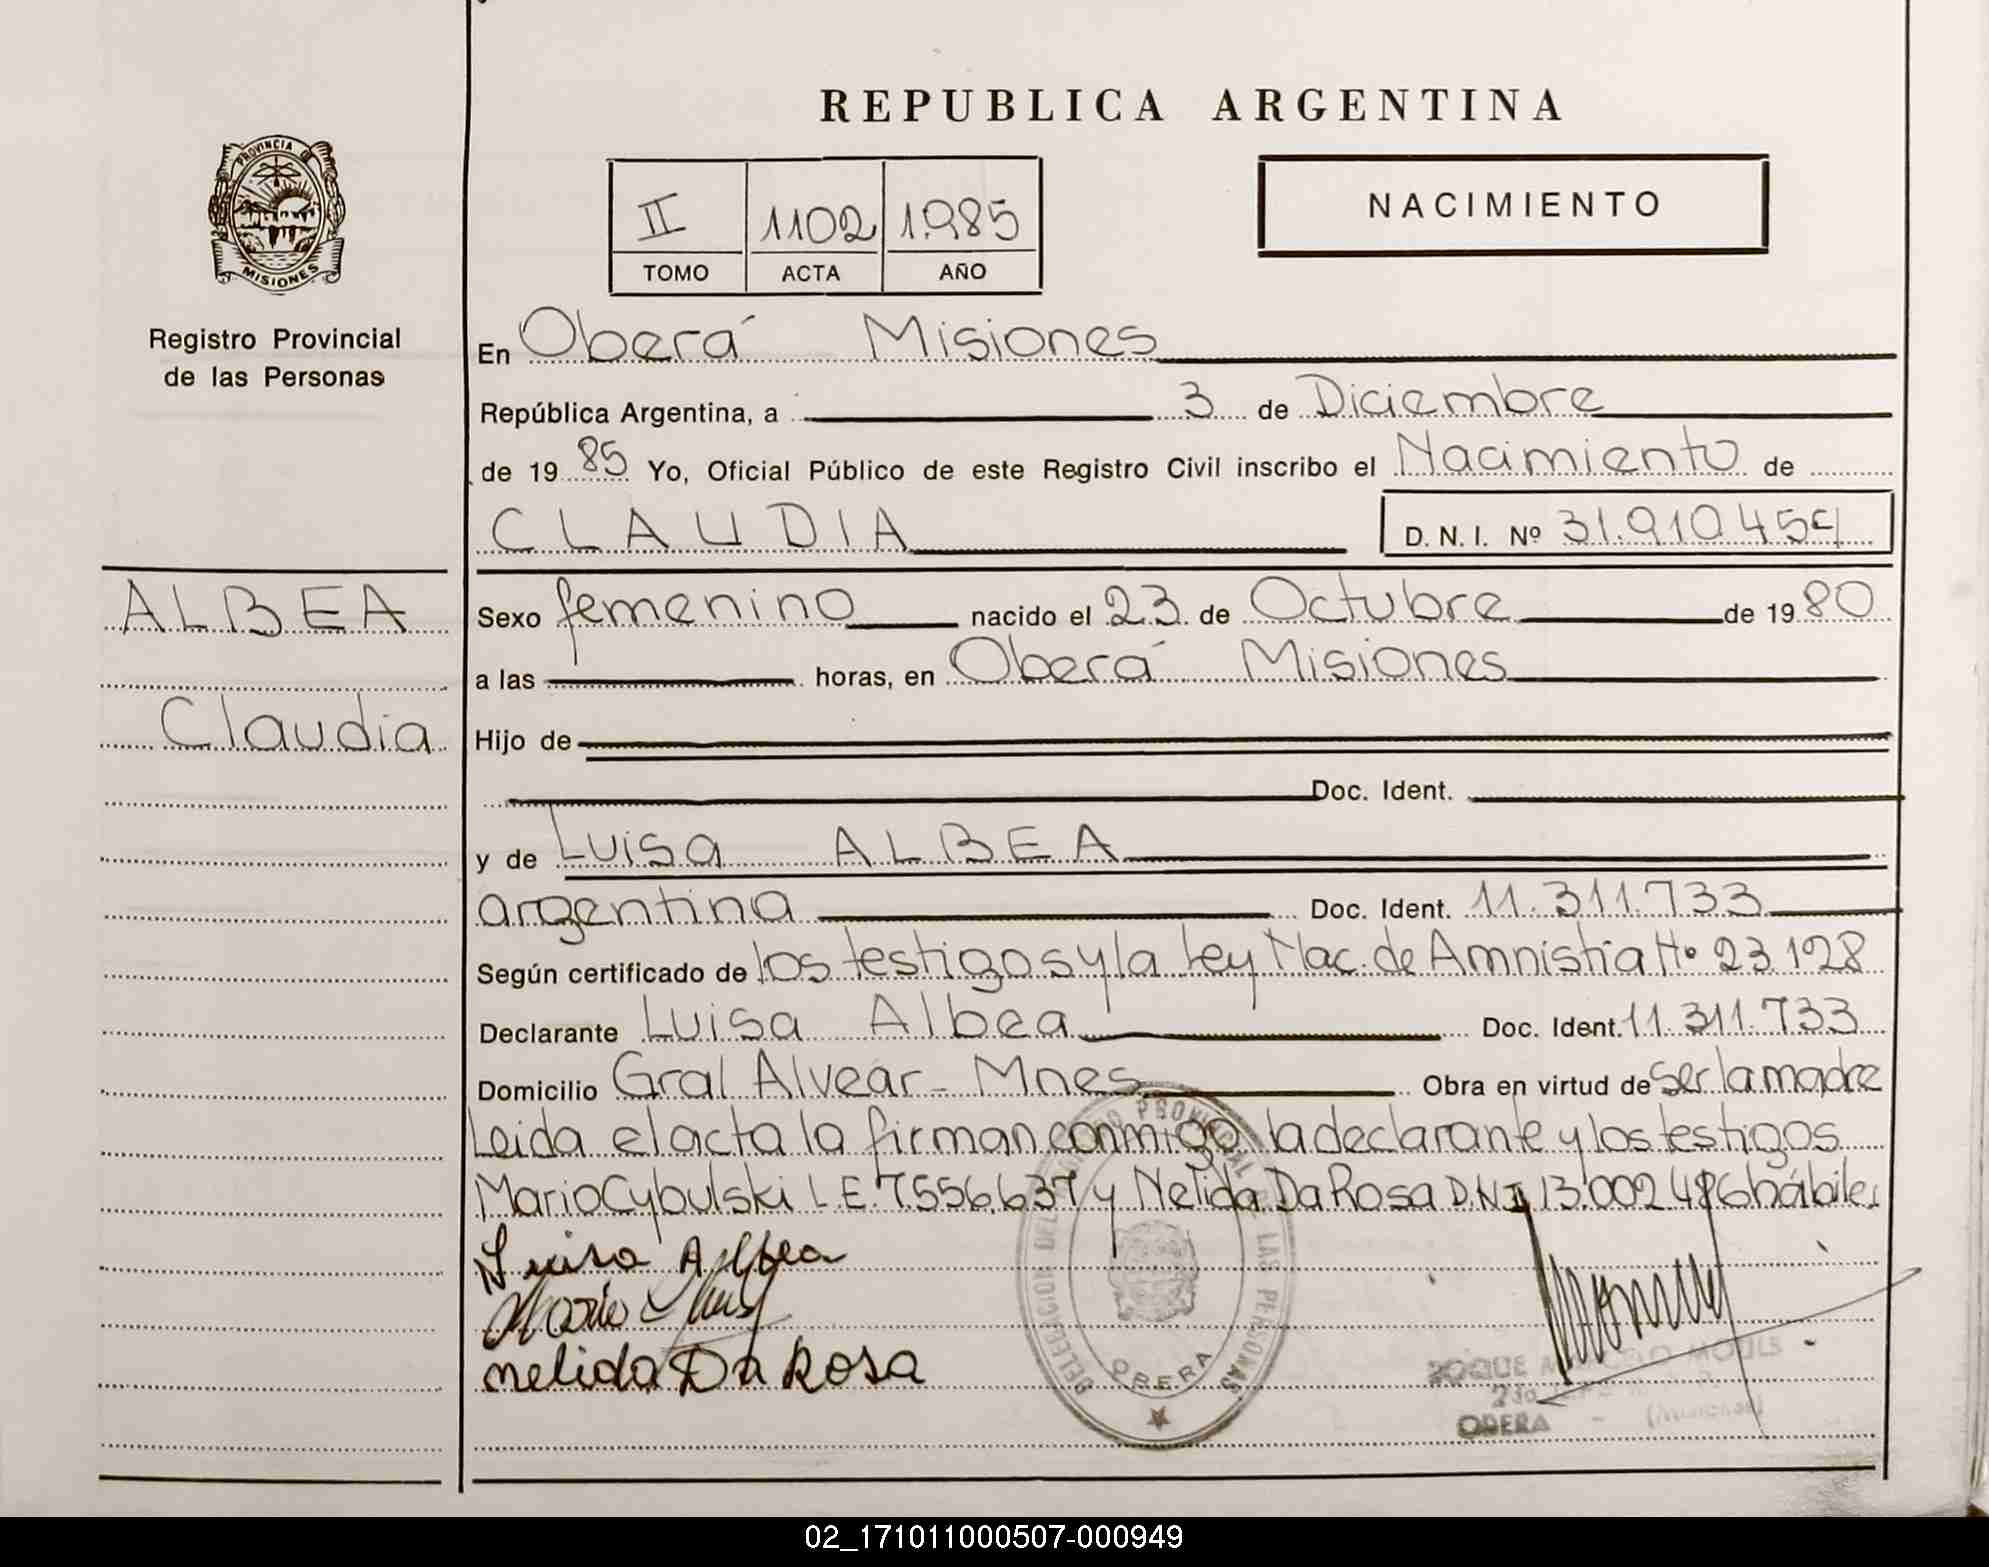 REPUBLICA ARGENTINA
PROVINCIA DE
MISIONES
Registro Provincial
de las Personas
II 1102 1.985
TOMO ACTA AÑO
NACIMIENTO
En Oberá Misiones
República Argentina, a 3 de Diciembre
de 19 85 Yo, Oficial Público de este Registro Civil inscribo el Nacimiento de
CLAUDIA D. N. I. Nº
ALBEA
Claudia
Sexo femenino nacido el 23 de Octubre de 19 80
a las horas, en Oberá Misiones
Hijo de
Doc. Ident.
y de Luisa ALBEA
argentina Doc. Ident. 11.311.733
Según certificado de los testigos y la Ley Nac. de Amnistia Nº 23.128
Declarante Luisa Albea Doc. Ident. 11.311.733
Domicilio Gral Alvear - Mnes Obra en virtud de ser la madre
Leida el acta la firman conmigo la declarante y los testigos
Mario Cybulski L.E. 7.556.637 y Nelida Da Rosa D.N.I 13.002.486 hábiles
Luisa Albea
Mario
nelida Da Rosa
DELEGACION DEL REGISTRO PROVINCIAL DE LAS PERSONAS
OBERA
ROQUE
OBERA - (Misiones)
02_171011000507-000949